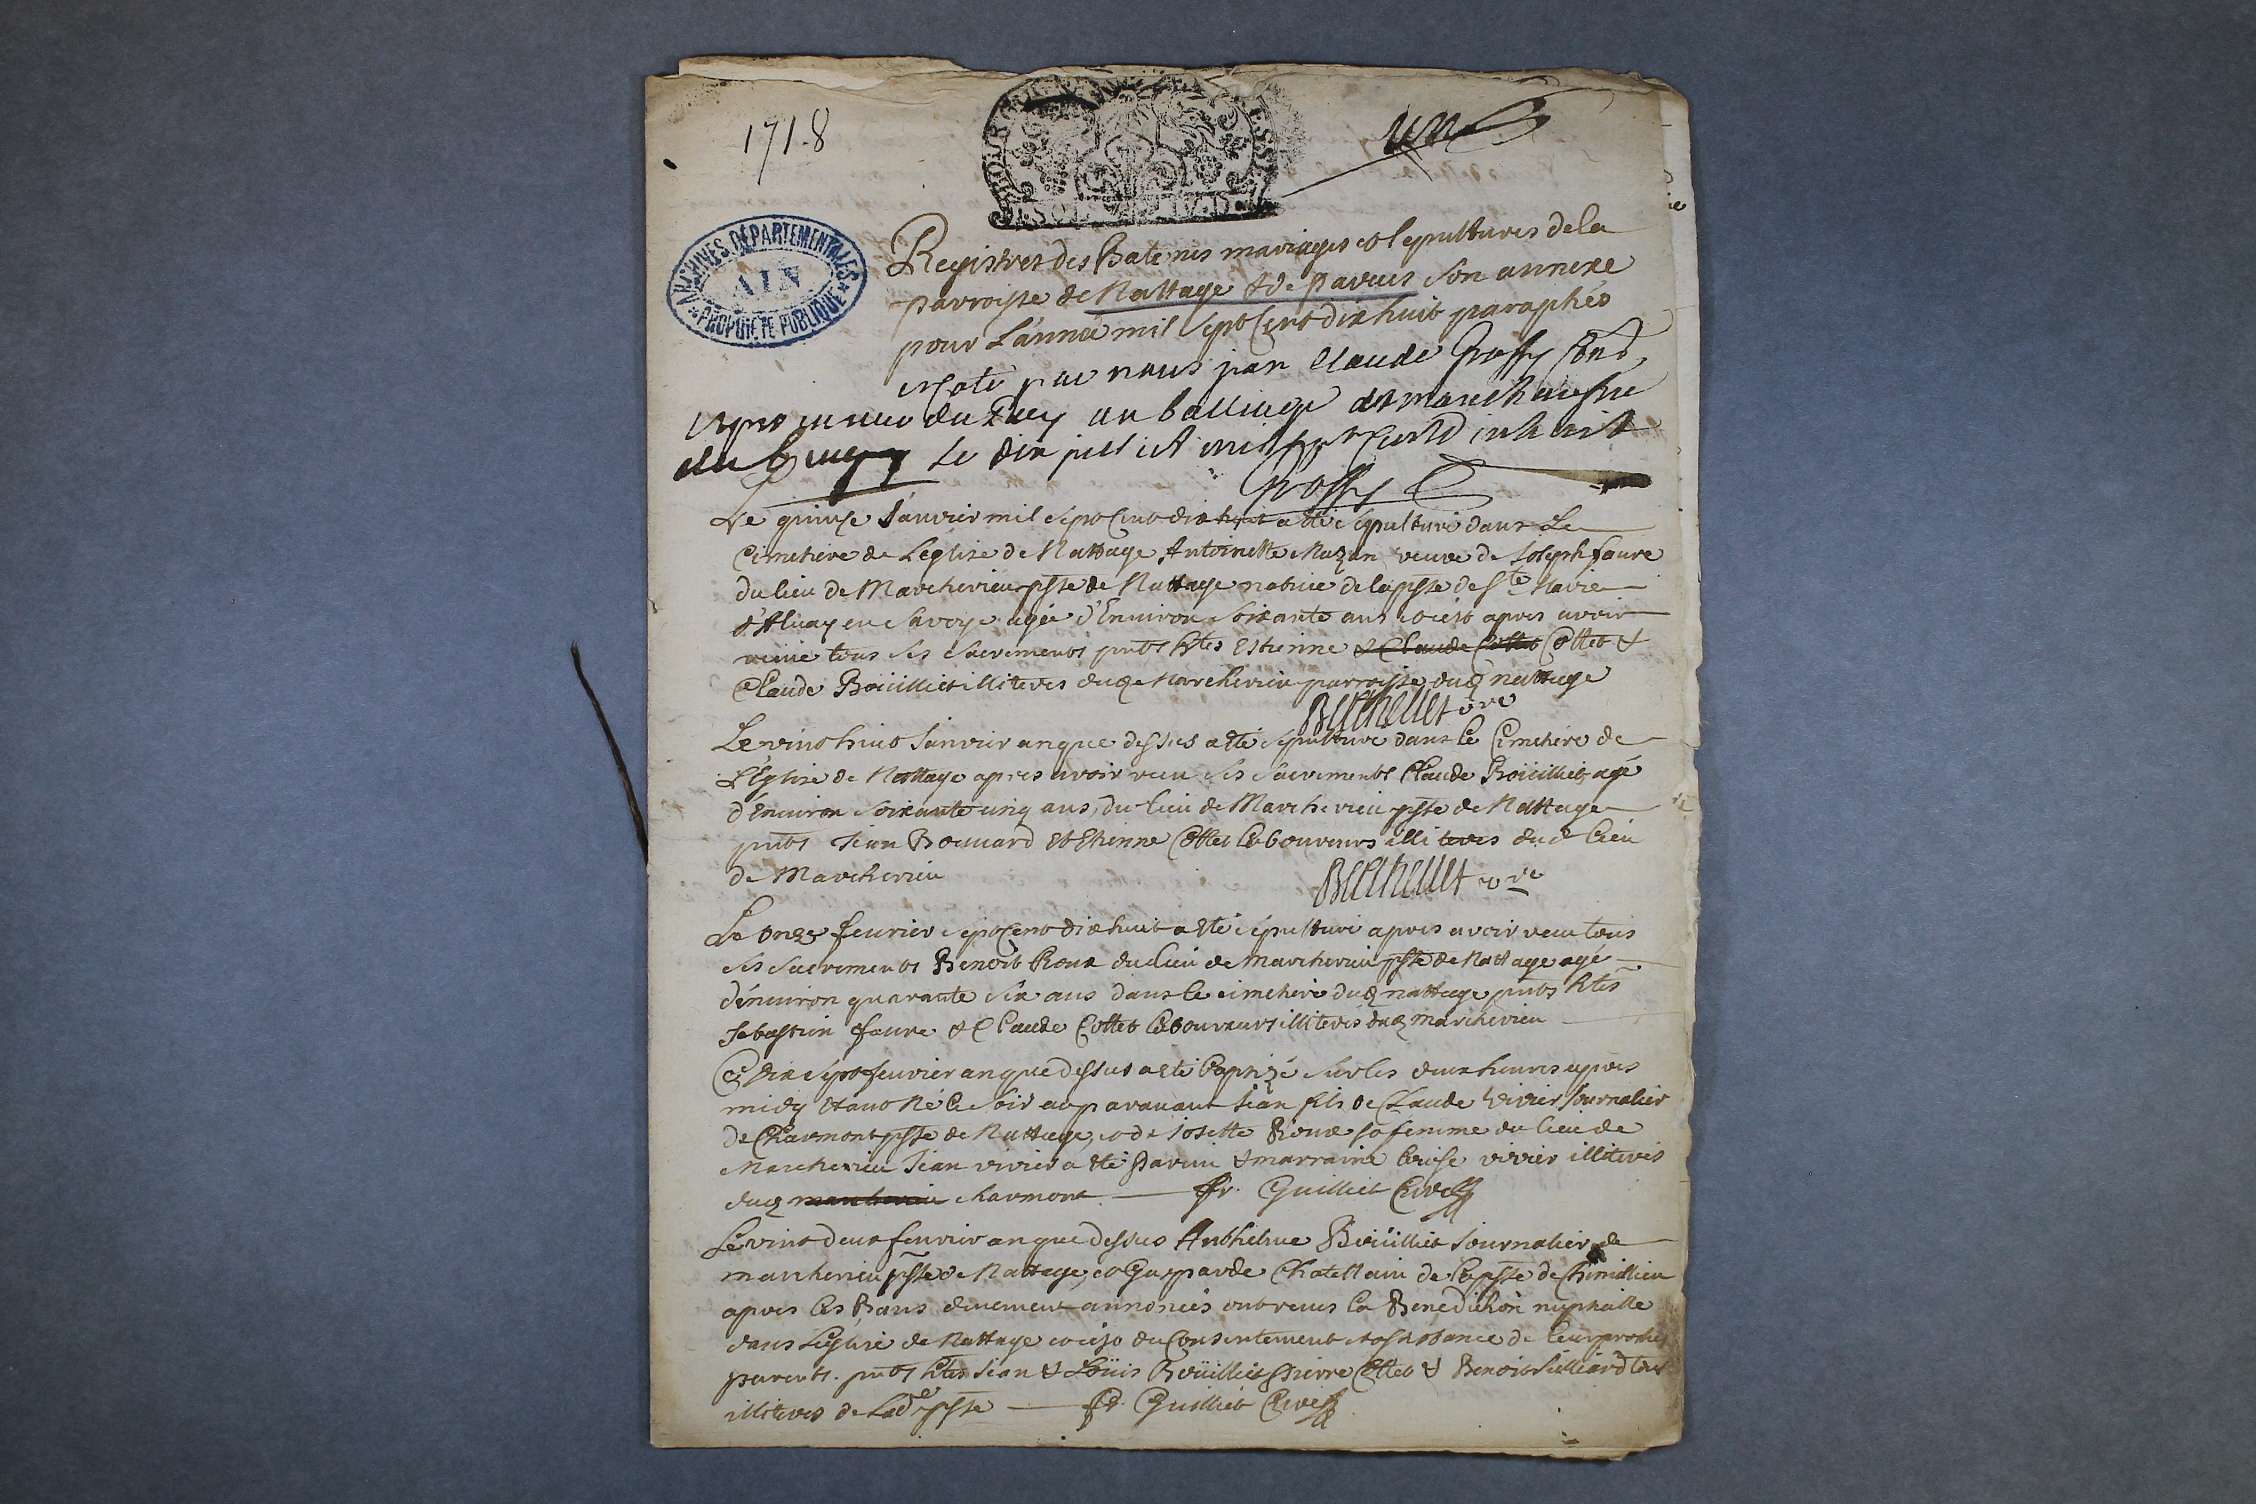 1718
un
ARCHIVES DEPARTEMENTALES
AIN
PROPRIETE PUBLIQUE
Registres des Batemes mariages et sepultures dela
parroisse de Nattage & de Parves son annexe
pour L'année mil sept Cent dix huit paraphés
et Coté par nous jean Claude Grossy
du Roy au balliage et marechaussée
du bugey le dix juillet mil sept Cent dix huit
Grossy
Le quinze Janvier mil sept Cent dix huit a esté sepulturé dans Le
Cimetiere de Leglise de Nattage Antoinette Mazan veuve de Joseph faure
du lieu de Marcherieu psse de Nattage native de la psse de Ste Marie
d'Alvay en Savoye agée d'Environ Soixante ans et ce apres avoir
receu tous ses Sacrements pnts Estienne & Claude Cottet Cottet &
Claude Boüilliet illiteres dud Marcherieu parroisse dud nattage
Berthellet vre
Le vint huit Janvier an que dessus a esté sepulturé dans le Cimetiere de
L'Eglise de Nattage apres avoir receu ses Sacrements Claude Boüilliet agé
d'Environ Soixante cinq ans, du lieu de Marcherieu psse de Nattage
pnts Jean Bouvard et Etienne Cottet Laboureurs illiteres dud lieu
de Marcherieu
Berthellet vre
Le onze fevrier sept Cent dix huit a esté sépulturé apres avoir receu tous
ses Sacrements Benoit Roux du lieu de Marcherieu psse de Nattage agé
d'environ quarante six ans dans le cimetiere dud nattage pnts
Sebastien faure & Claude Cottet Laboureurs illiteres dud marcherieu
Ce dix sept fevrier an que dessus a esté baptizé sur les deux heures apres
midy étant Né le soir auparavant Jean fils de Claude Vivier Journalier
de Charmont psse de Nattage, et de Josette Roux sa femme du lieu de
Marcherieu Jean vivier a esté parain & marraine Louise vivier illiteres
dud marcherieu charmont fr. Guilliet Curé
Le vint deux fevrier an que dessus Anthelme Boüilliet Journalier de
marcherieu psse de Nattage, et Gasparde Chatellain de la psse de Chimillieu
apres les Bans deuement annoncés ont receus la Benediction nuptialle
dans L'eglise de Nattage et ce du Consentement et assistance de leurs proches
parents. pnts Jean & Loüis Boüilliet Pierre Cottet & Benoit Julliard tous
illiteres de Lad psse fr. Guilliet Curé